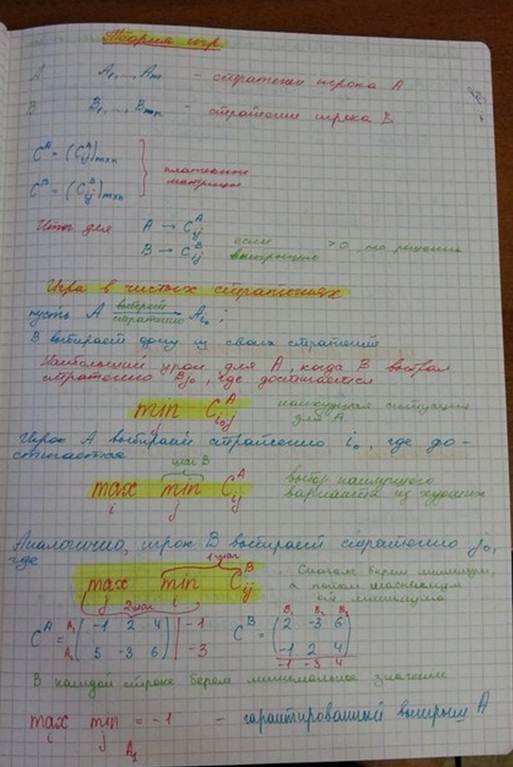 Теория игр.
A A₁,...,Aₘ – стратегии игрока A
B B₁,...,Bₘₙ – стратегии игрока B
Cᴬ = (Cᴬᵢⱼ)ₘₓₙ
Cᴮ = (Cᴮᵢⱼ)ₘₓₙ } платежные матрицы
Итог для A → Cᴬᵢⱼ
B → Cᴮᵢⱼ если выигрыша >0, то
Игра в чистых стратегиях
пусть A выберет стратегию Aᵢ₀;
B выбирает одну из своих стратегий
Наибольший урон для A, когда B выбрал
стратегию Bⱼ₀, где достигается
min Cᴬᵢ₀ⱼ наихудшая ситуация для A
j
Игрок A выбирает стратегию i₀, где до-
стигается
шаг B
max min Cᴬᵢⱼ выбор наилучшего варианта из худших
i j
Аналогично, игрок B выбирает стратегию j₀,
где
1 шаг
max min Cᴮᵢⱼ . Сначала берем минимум, а потом максимум от минимума
j i
2 шаг
Cᴬ = A₁ ( -1 2 4 ) | -1
A₂ ( 5 -3 6 ) | -3
B₁ B₂ B₃
Cᴮ = ( 2 -3 6 )
( -1 2 4 )
-1 -3 4
В каждой строке берем минимальное значение
max min = -1 – гарантированный выигрыш A
i j A₁